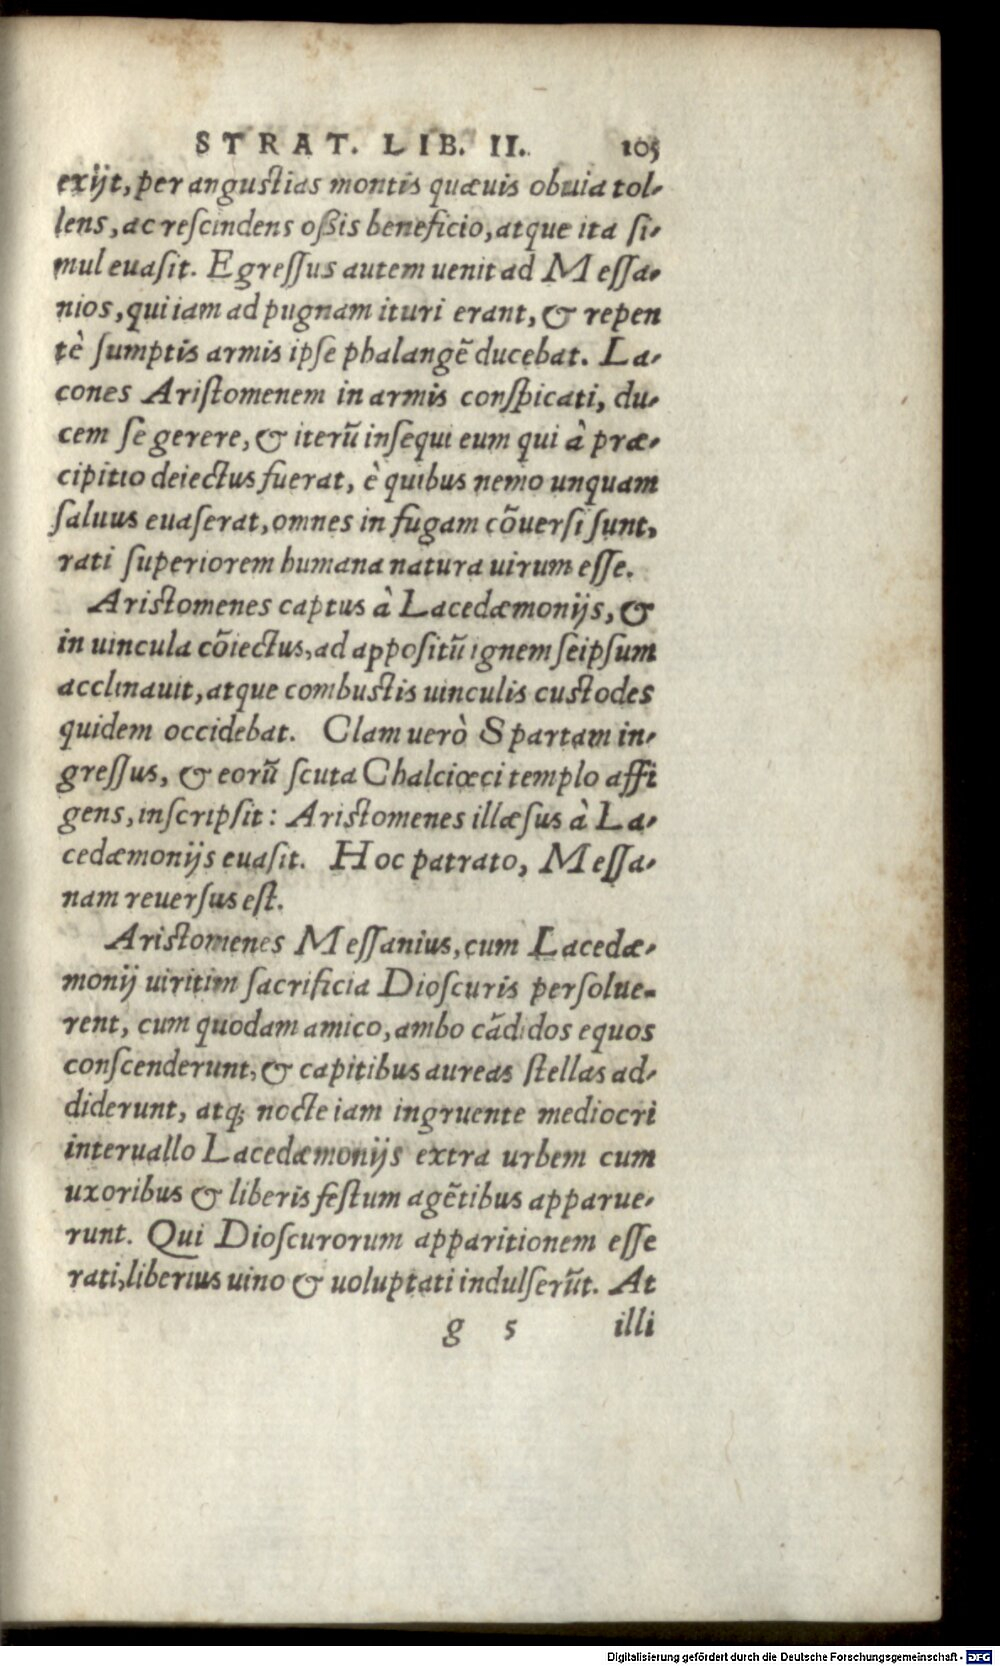 STRAT. LIB. II. 105
exijt, per angustias montis quæuis obuia tol-
lens, ac rescindens oßis beneficio, atque ita si-
mul euasit. Egressus autem uenit ad Messa-
nios, qui iam ad pugnam ituri erant, & repen
tè sumptis armis ipse phalangē ducebat. La-
cones Aristomenem in armis conspicati, du-
cem se gerere, & iterū insequi eum qui à præ-
cipitio deiectus fuerat, è quibus nemo unquam
saluus euaserat, omnes in fugam cōuersi sunt,
rati superiorem humana natura uirum esse.
Aristomenes captus à Lacedæmonijs, &
in uincula cōiectus, ad appositū ignem seipsum
acclinauit, atque combustis uinculis custodes
quidem occidebat. Clam uerò Spartam in-
gressus, & eorū scuta Chalciœci templo affi
gens, inscripsit: Aristomenes illæsus à La-
cedæmonijs euasit. Hoc patrato, Messa-
nam reuersus est.
Aristomenes Messanius, cum Lacedæ-
monij uiritim sacrificia Dioscuris persolue-
rent, cum quodam amico, ambo cādidos equos
conscenderunt, & capitibus aureas stellas ad-
diderunt, atq; nocte iam ingruente mediocri
interuallo Lacedæmonijs extra urbem cum
uxoribus & liberis festum agētibus apparue-
runt. Qui Dioscurorum apparitionem esse
rati, liberius uino & uoluptati indulserūt. At
g 5 illi
Digitalisierung gefördert durch die Deutsche Forschungsgemeinschaft - DFG